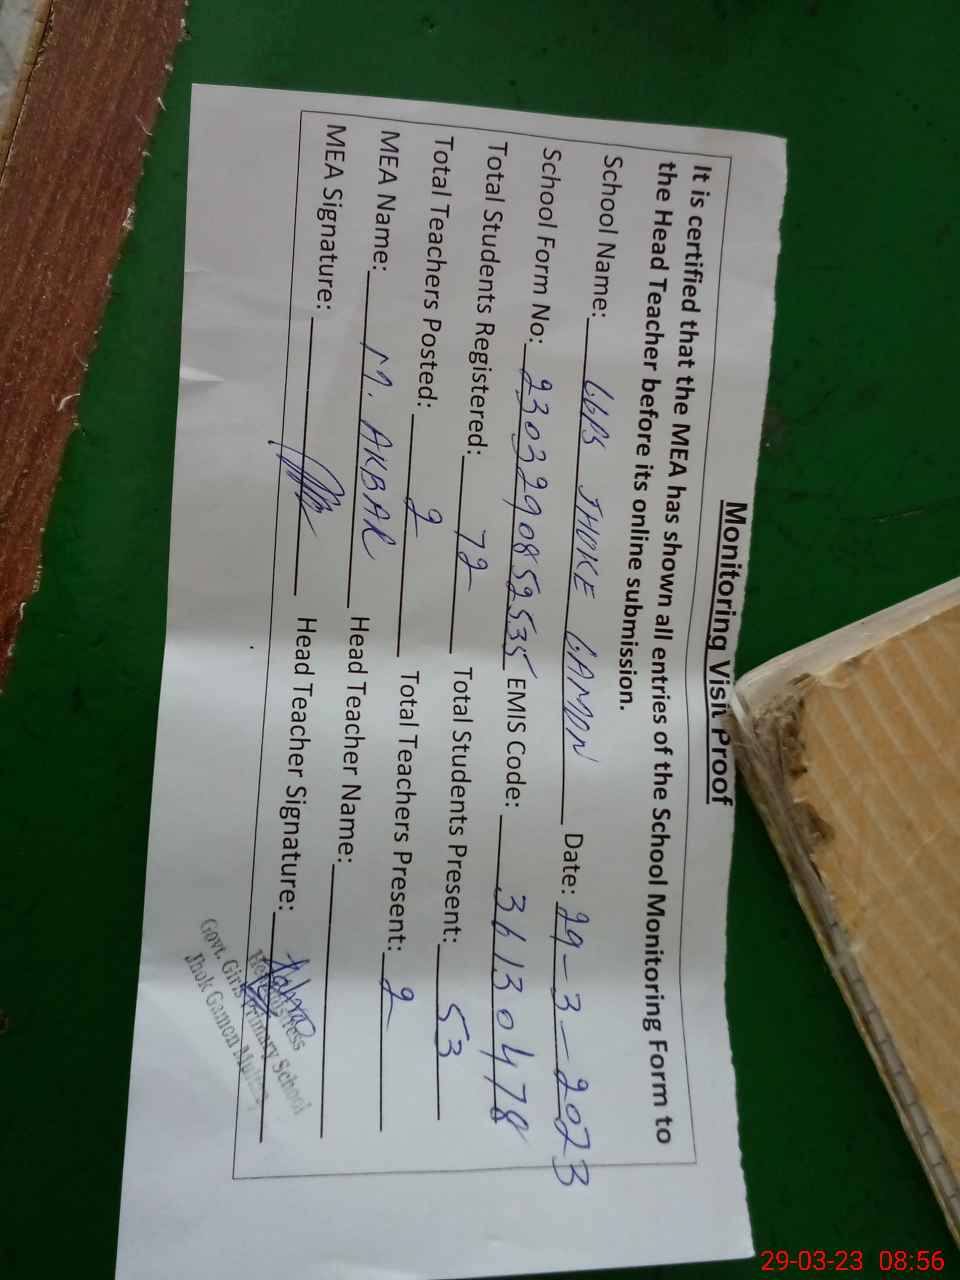 Monitoring Visit Proof
It is certified that the MEA has shown all entries of the School Monitoring Form to
the Head Teacher before its online submission.
School Name: GGPS JHOKE GAMON Date: 29-3-2023
School Form No: 230329085 2535 EMIS Code: 36130478
Total Students Registered: 72 Total Students Present: 53
Total Teachers Posted: 2 Total Teachers Present: 2
MEA Name: M. AKBAR Head Teacher Name:
MEA Signature: Head Teacher Signature:
Headmistress
Govt. Girls Primary School
Jhok Gamon Multan
29-03-23 08:56